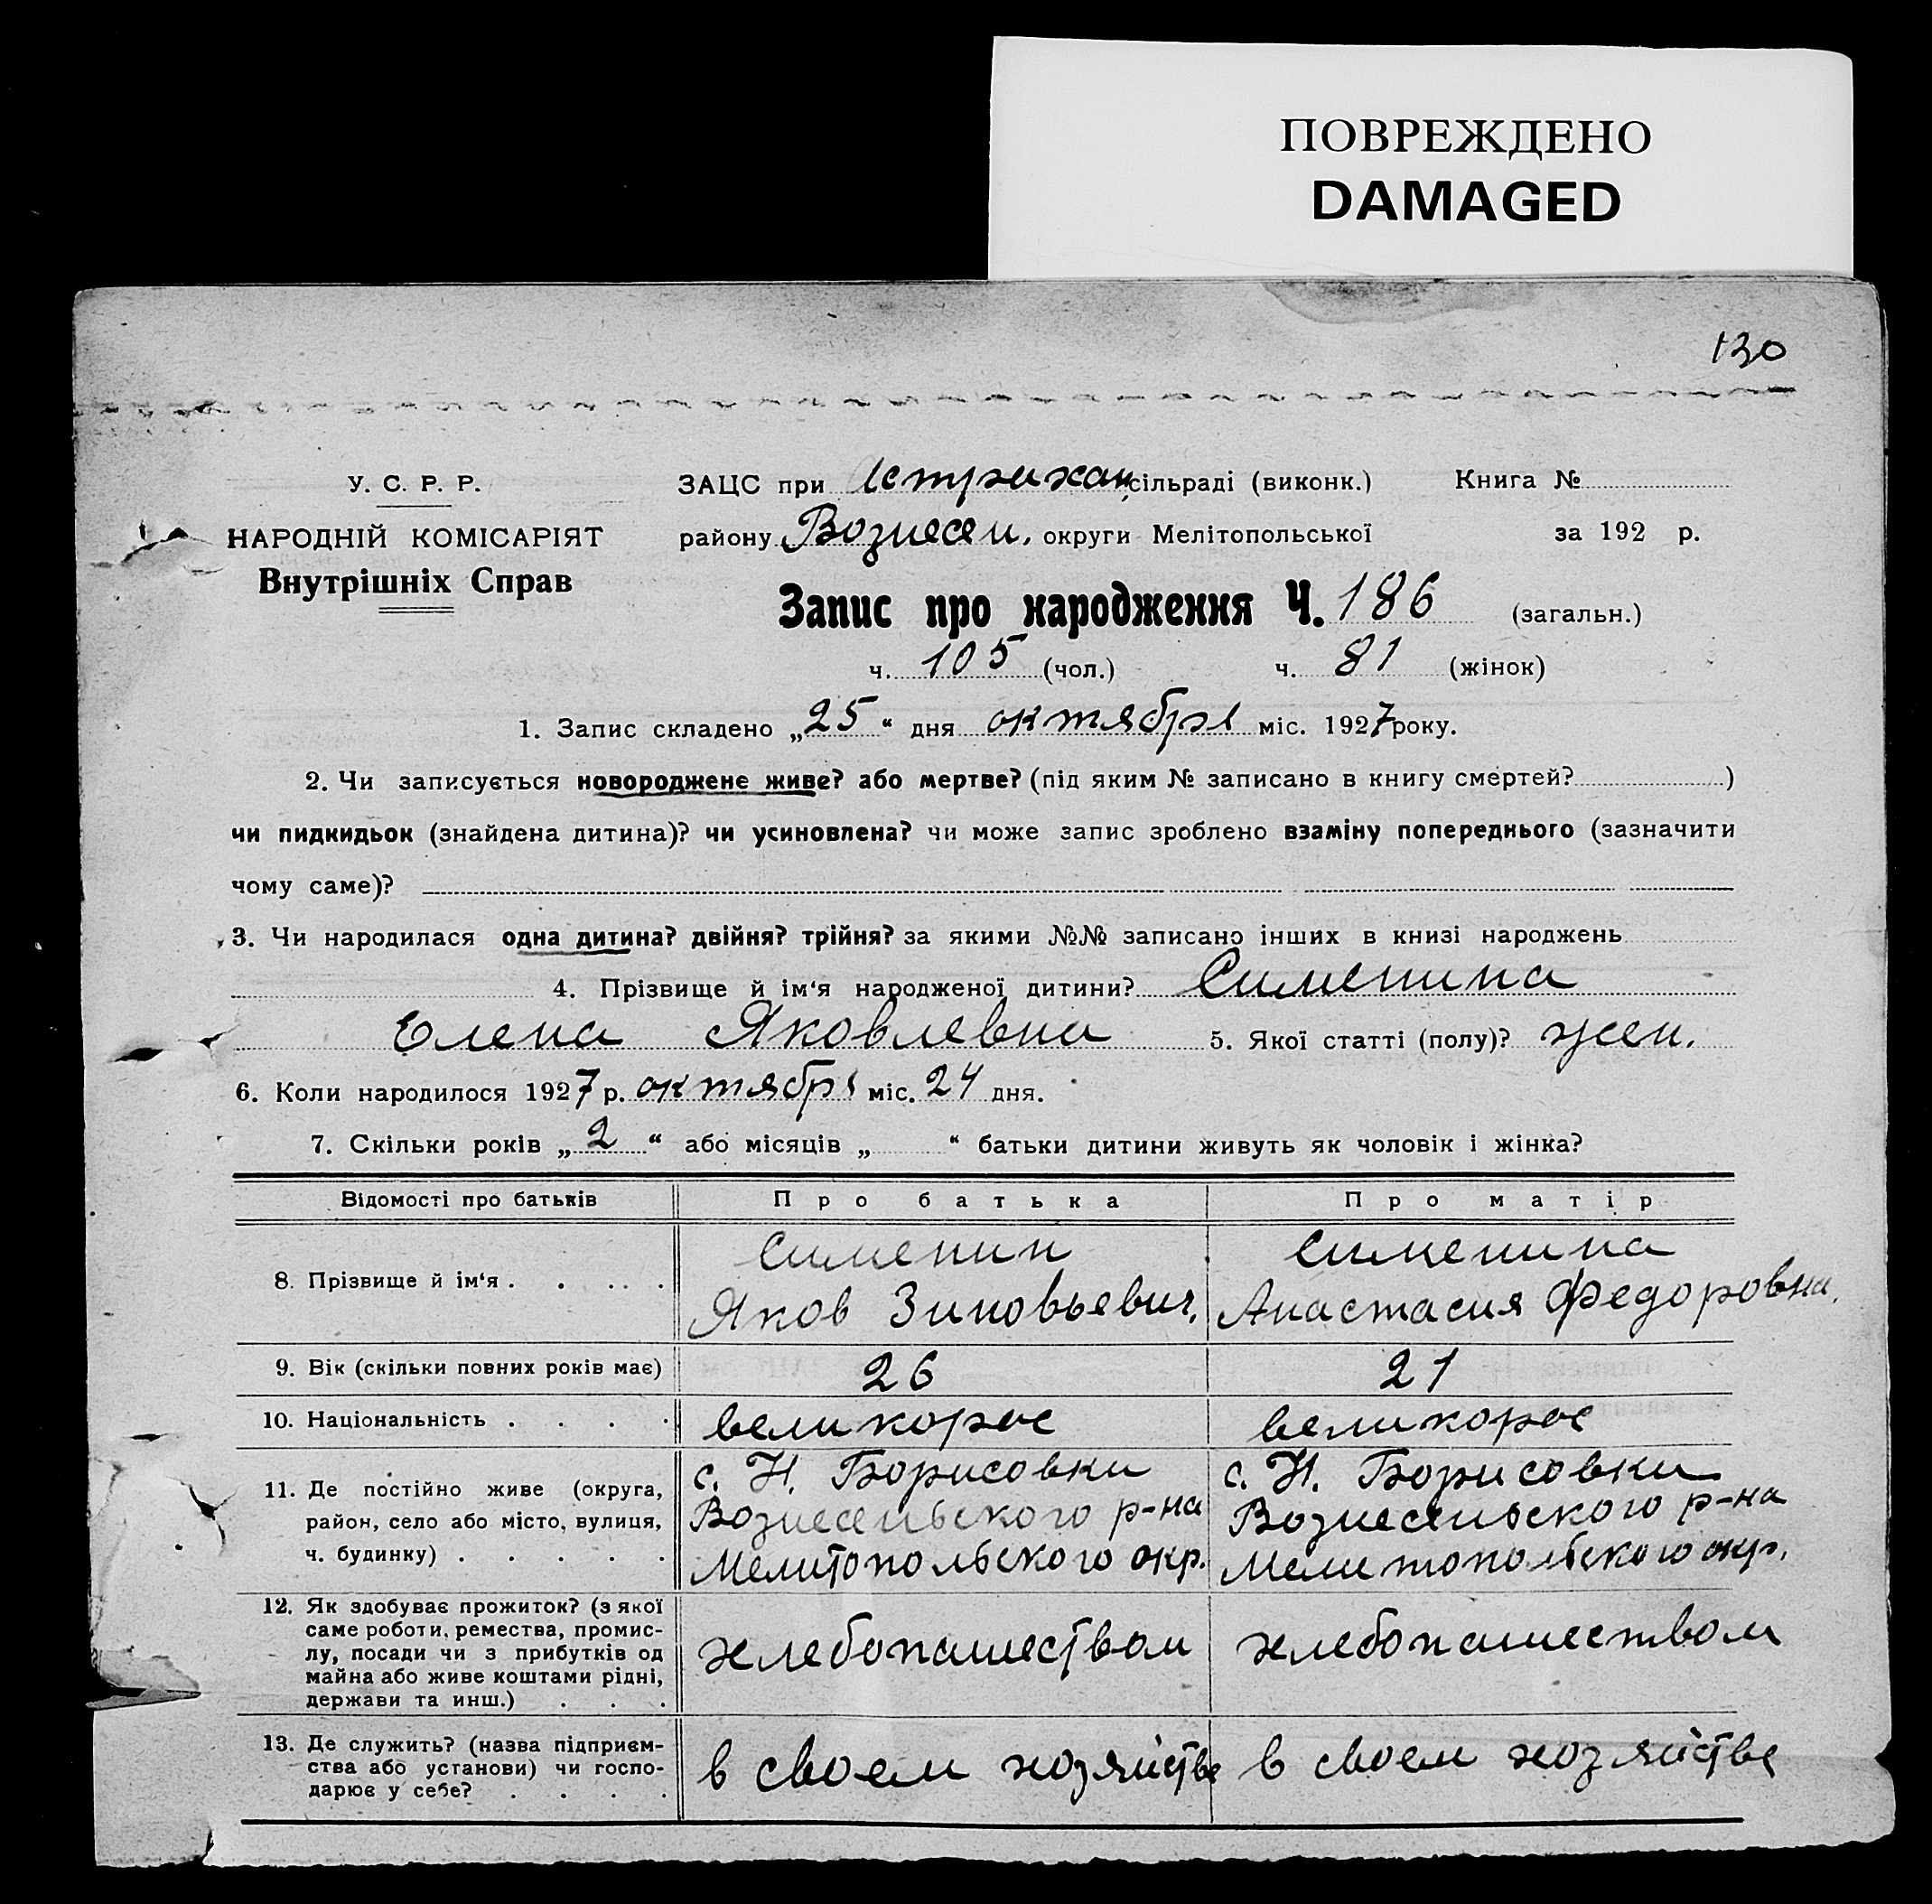 ПОВРЕЖДЕНО
DAMAGED
130
У. С. Р. Р.
НАРОДНІЙ КОМІСАРІЯТ
Внутрішніх Справ
ЗАЦС при Астрахан. сільраді (виконк.) Книга №
району Вознесен. округи Мелітопольської за 192 р.
Запис про народження Ч. 186 (загальн.)
ч. 105 (чол.) ч. 81 (жінок)
1. Запис складено „25“ дня октября міс. 1927 року.
2. Чи записується новороджене живе? або мертве? (під яким № записано в книгу смертей? )
чи пидкидьок (знайдена дитина)? чи усиновлена? чи може запис зроблено взаміну попереднього (зазначити
чому саме)?
3. Чи народилася одна дитина? двійня? трійня? за якими №№ записано інших в книзі народжень
4. Прізвище й ім‘я народженої дитини? Сименина
Елена Яковлевна 5. Якої статті (полу)? жен.
6. Коли народилося 1927 р. октября міс. 24 дня.
7. Скільки років „2“ або місяців „ “ батьки дитини живуть як чоловік і жінка?
Відомості про батьків Про батька Про матір
8. Прізвище й ім‘я . . . . . Сименин Сименина
Яков Зиновьевич. Анастасия Федоровна.
9. Вік (скільки повних років має) 26 21
10. Національність . . . . великорос великорос
11. Де постійно живе (округа, с. Н. Борисовки с. Н. Борисовки
район, село або місто, вулиця, Вознесеньского р-на Вознесеньского р-на
ч. будинку) . . . . . Мелитопольского окр. Мелитопольского окр.
12. Як здобуває прожиток? (з якої
саме роботи, ремества, промис-
лу, посади чи з прибутків од хлебопашеством хлебопашеством
майна або живе коштами рідні,
держави та инш.) . . .
13. Де служить? (назва підприєм-
ства або установи) чи госпо- в своем хозяйстве в своем хозяйстве
дарює у себе? . . . .